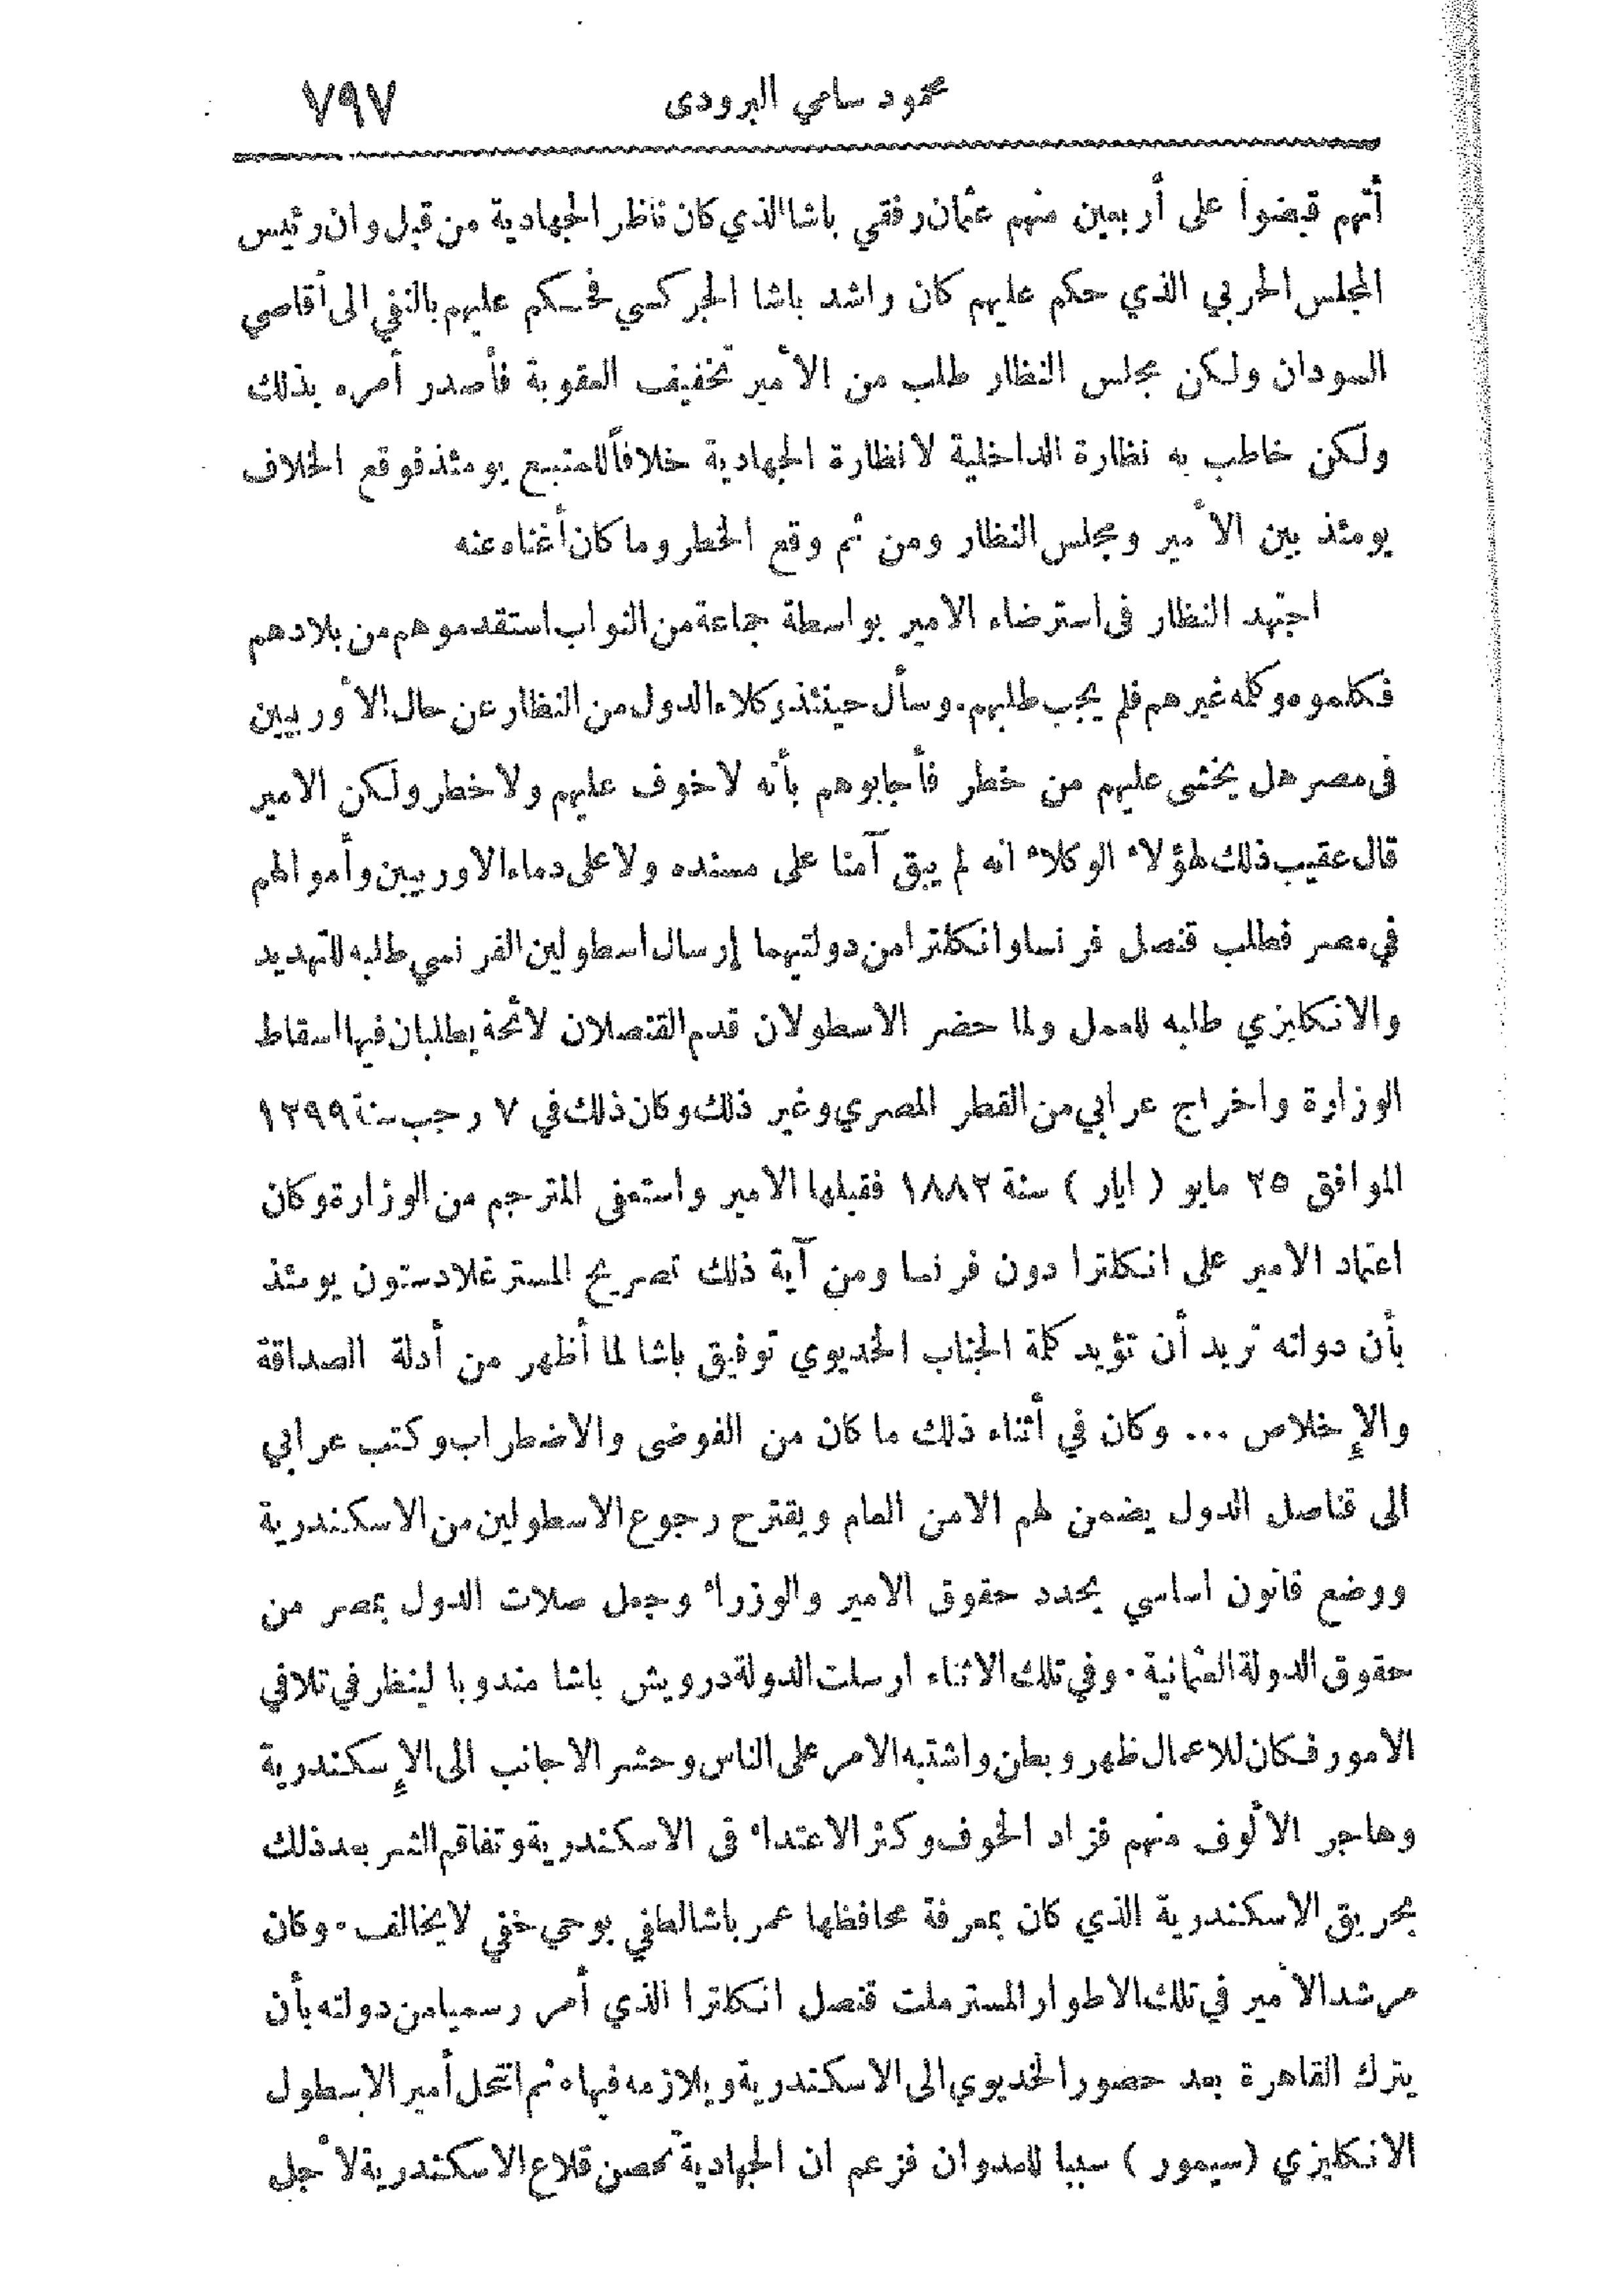 محمود سامي البرودى ٧٩٧
أنهم قبضوا على أربعين منهم عثمان رفقي باشا الذي كان ناظر الجهادية من قبل وان رئيس
المجلس الحربي الذي حكم عليهم كان راشد باشا الجركسي فحكم عليهم بالنفي الى أقاصي
السودان ولكن مجلس النظار طلب من الأمير تخفيف العقوبة فأصدر أمره بذلك
ولكن خاطب به نظارة الداخلية لا نظارة الجهادية خلافاً للمتبع يومئذ فوقع الخلاف
يومئذ بين الأمير ومجلس النظار ومن ثم وقع الخطر وما كان أغناه عنه
اجتهد النظار فى استرضاء الامير بواسطة جماعة من النواب استقدموهم من بلادهم
فكلموه وكلمه غيرهم فلم يجب طلبهم. وسأل حينئذ وكلاء الدول من النظار عن حال الأوربيين
فى مصر هل يخشى عليهم من خطر فأجابوهم بأنه لا خوف عليهم ولا خطر ولكن الامير
قال عقيب ذلك لهؤلاء الوكلاء انه لم يبق آمنا على مسنده ولا على دماء الاوربيين وأموالهم
في مصر فطلب قنصل فرنسا وانكلترا من دولتيهما إرسال اسطولين الفرنسي طلبه للتهديد
والانكليزي طلبه للعمل ولما حضر الاسطولان قدم القنصلان لائحة يطلبان فيها اسقاط
الوزارة واخراج عرابي من القطر المصري وغير ذلك وكان ذلك في ٧ رجب سنة ١٢٩٩
الموافق ٢٥ مايو ( ايار ) سنة ١٨٨٢ فقبلها الامير واستعفى المترجم من الوزارة وكان
اعتماد الامير على انكلترا دون فرنسا ومن آية ذلك تصريح المستر غلادستون يومئذ
بأن دولته تريد أن تؤيد كلمة الجناب الخديوي توفيق باشا لما أظهر من أدلة الصداقة
والإخلاص ... وكان في أثناء ذلك ما كان من الفوضى والاضطراب وكتب عرابي
الى قناصل الدول يضمن لهم الامن العام ويقترح رجوع الاسطولين من الاسكندرية
ووضع قانون اساسي يحدد حقوق الامير والوزراء وجعل صلات الدول بمصر من
حقوق الدولة العثمانية. وفي تلك الاثناء ارسلت الدولة درويش باشا مندوبا لينظر في تلافي
الامور فكان للاعمال ظهر وبطن واشتبه الامر على الناس وحشر الاجانب الى الإسكندرية
وهاجر الألوف منهم فزاد الخوف وكثر الاعتداء فى الاسكندرية وتفاقم الشر بعد ذلك
بحريق الاسكندرية الذي كان بمعرفة محافظها عمر باشا لطفي بوحي خفي لا يخالف. وكان
مرشد الأمير في تلك الاطوار المستر ملت قنصل انكلترا الذي أمر رسميا من دولته بأن
يترك القاهرة بعد حضور الخديوي الى الاسكندرية ويلازمه فيها. ثم انتحل أمير الاسطول
الانكليزي (سيمور ) سببا للعدوان فزعم ان الجهادية تحصن قلاع الاسكندرية لأجل